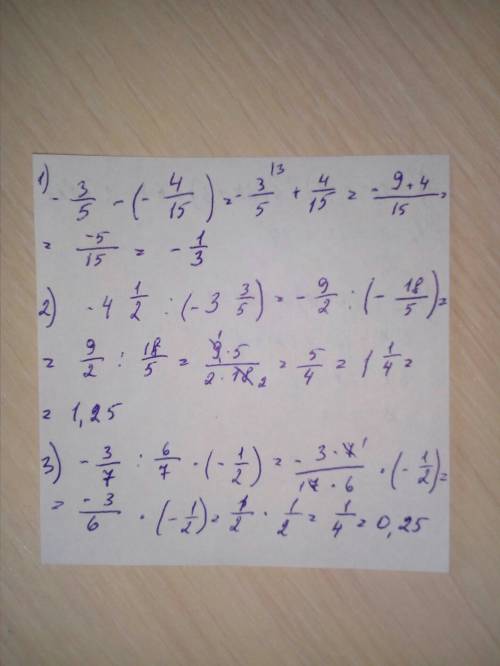 1) - 3/5 - (- 4/15) = - 3/5 ^(13 + 4/15 = - 9+4/15 =
= -5/15 = - 1/3
2) -4 1/2 : (-3 3/5) = - 9/2 : (- 18/5) =
= 9/2 : 18/5 = 9¹·5/2·18 2 = 5/4 = 1 1/4 =
= 1,25
3) - 3/7 : 6/7 · (- 1/2) = - 3·7¹/17·6 · (- 1/2) =
= -3/6 · (- 1/2) = 1/2 · 1/2 = 1/4 = 0,25